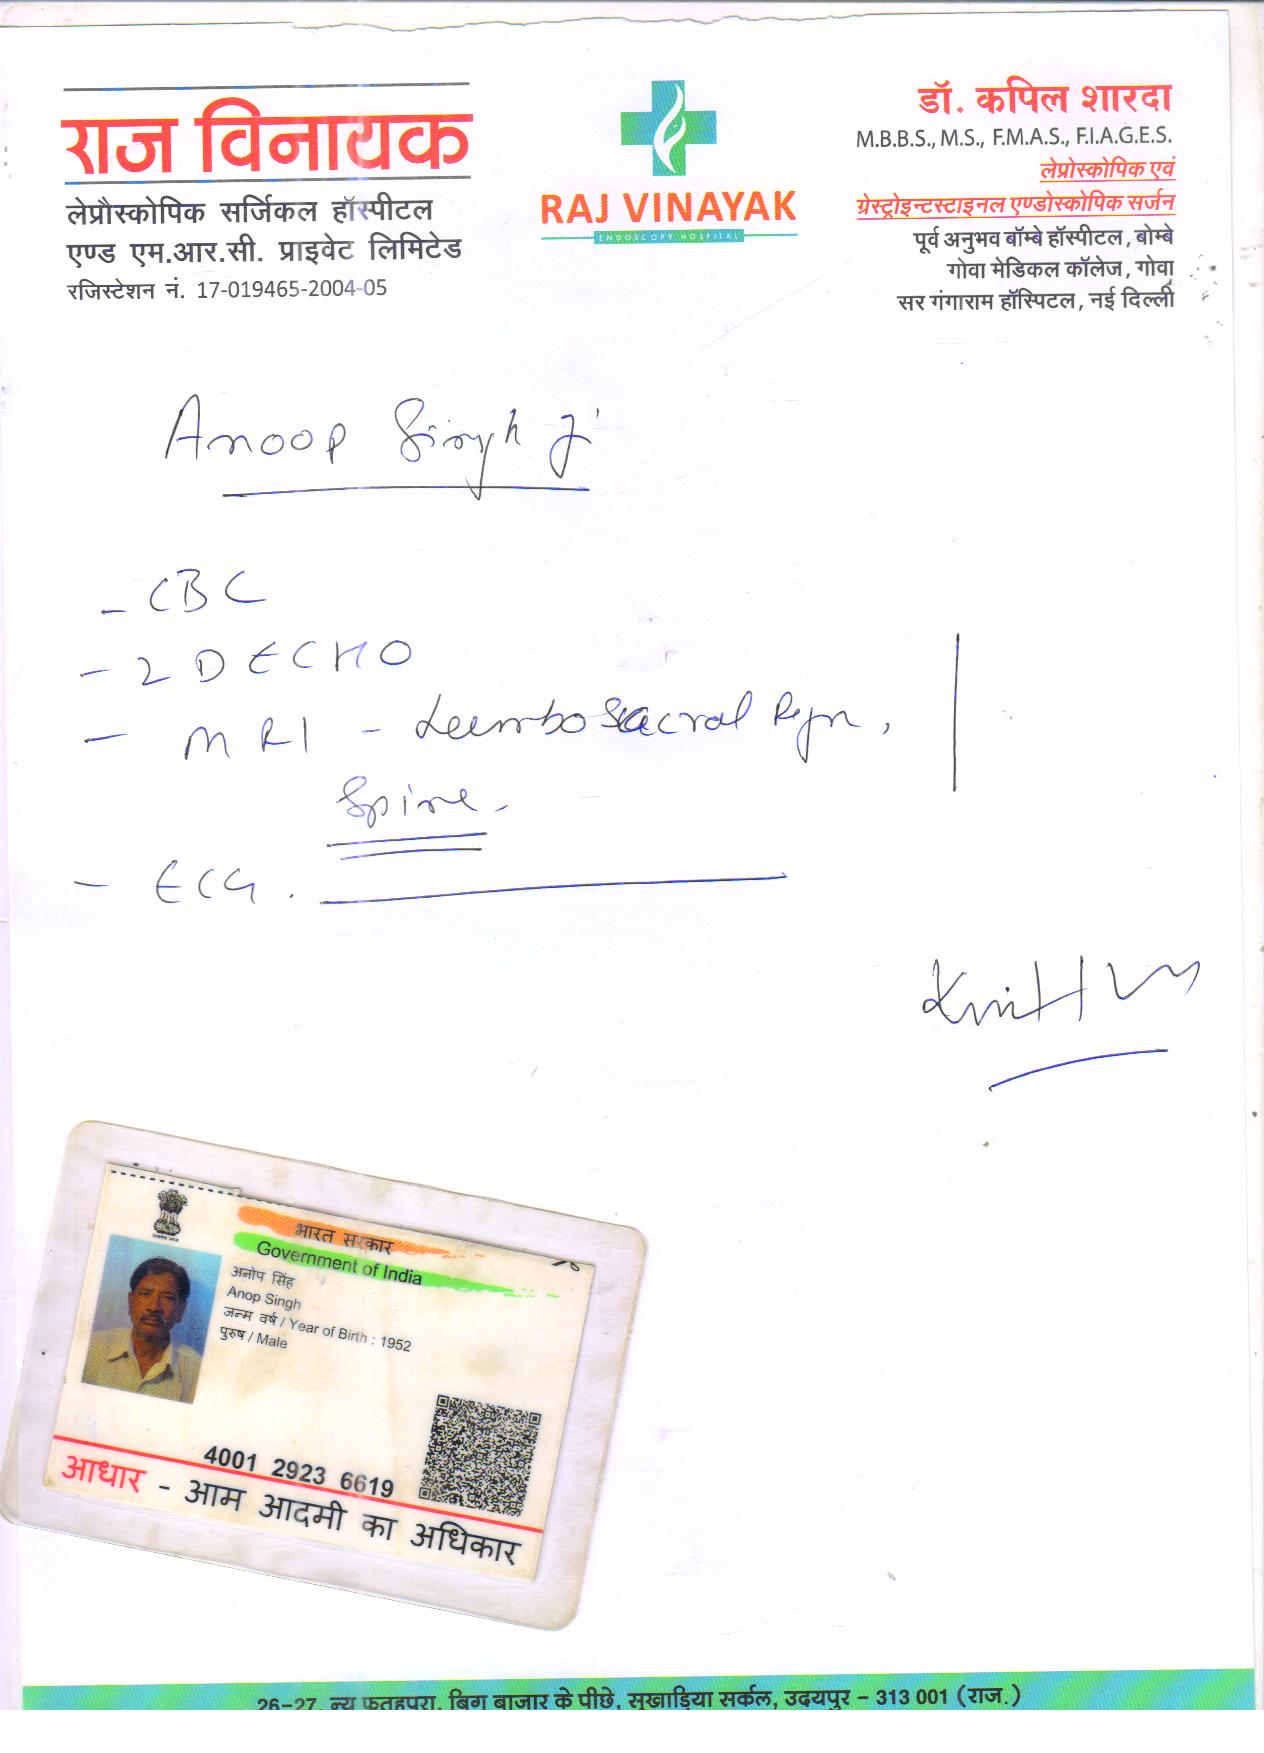 राज विनायक
लेप्रौस्कोपिक सर्जिकल हॉस्पीटल
एण्ड एम.आर.सी. प्राइवेट लिमिटेड
रजिस्टेशन नं. 17-019465-2004-05
RAJ VINAYAK
ENDOSCOPY HOSPITAL
डॉ. कपिल शारदा
M.B.B.S., M.S., F.M.A.S., F.I.A.G.E.S.
लेप्रोस्कोपिक एवं
ग्रेस्ट्रोइन्टस्टाइनल एण्डोस्कोपिक सर्जन
पूर्व अनुभव बॉम्बे हॉस्पीटल, बोम्बे
गोवा मेडिकल कॉलेज, गोवा
सर गंगाराम हॉस्पिटल, नई दिल्ली
Anoop Singh Ji
- CBC
- 2D ECHO
- MRI - Lumbosacral Regn,
Spine.
- ECG.
भारत सरकार
Government of India
अनोप सिंह
Anop Singh
जन्म वर्ष / Year of Birth : 1952
पुरुष / Male
4001 2923 6619
आधार - आम आदमी का अधिकार
26-27, न्यू फतहपुरा, बिग बाजार के पीछे, सुखाड़िया सर्कल, उदयपुर - 313 001 (राज.)